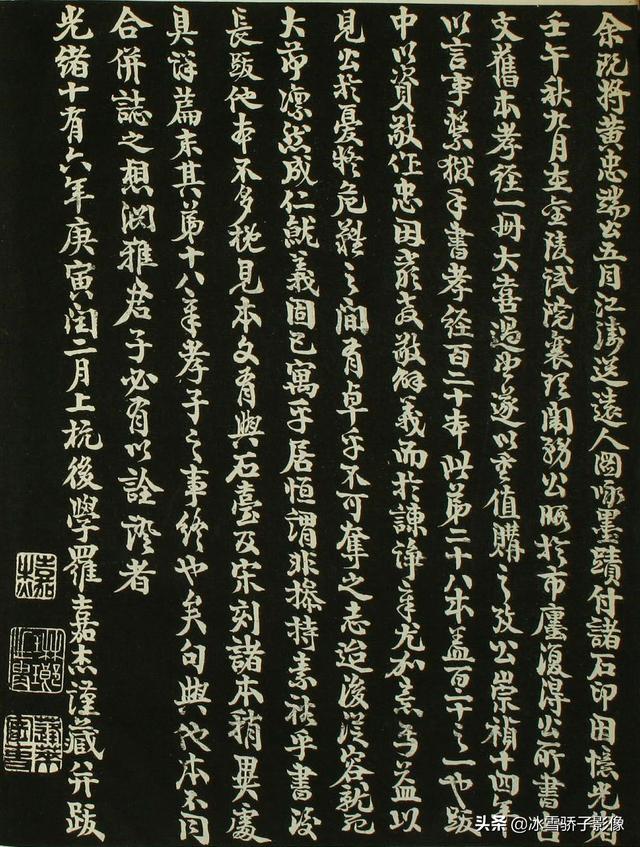 余既將黃忠端公五月江濤送遠人圖咏墨蹟付諸石印因憶光緒
壬午秋九月在金陵試院襄理闈務公暇於市廛復得公所書古
文舊本孝經一冊大喜過望遂以重值購之攷公崇禎十四年
以言事繫獄手書孝經百二十本此第二十八本蓋百二十之一也跋
中以資敬作忠因嚴敬敬解義而於諫諍章尤加意焉益以
見公於憂疑危難之間有卓乎不可奪之志迨後從容就死
大節凜然成仁就義固已寓乎居恒謂非操持素裕乎書後
長跋他本不多梲見本文有與石臺及宋刻諸本稍異處
具詳篇末其第十八章孝子之事終也矣句與他本不同
合併誌之想淵雅君子必有以詮證者
光緒十有六年庚寅閏二月上杭後學羅嘉杰謹藏并跋
嘉杰
頭条 @冰雪骄子影像